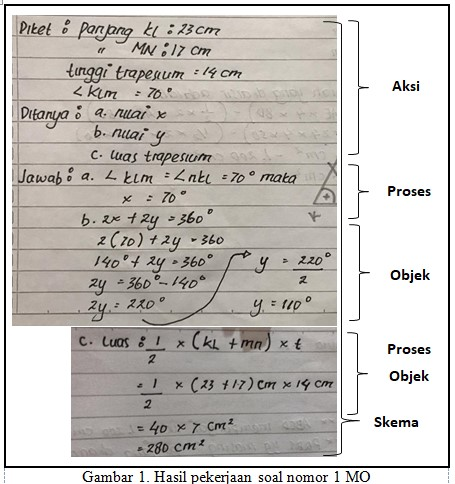 Diket : Panjang KL : 23 cm
" MN : 17 cm
tinggi trapesium = 14 cm
∠ KLM = 70°
Ditanya : a. nilai x
b. nilai y
c. luas trapesium
Jawab : a. ∠ KLM = ∠NKL = 70° maka
x = 70°
b. 2x + 2y = 360°
2(70) + 2y = 360
140° + 2y = 360°
2y = 360° - 140°
2y = 220°
y = 220°
2
y = 110°
K
c. Luas : 1/2 × (KL + MN) × t
= 1/2 × (23 + 17) cm × 14 cm
= 40 × 7 cm²
= 280 cm²
Aksi
Proses
Objek
Proses
Objek
Skema
Gambar 1. Hasil pekerjaan soal nomor 1 MO